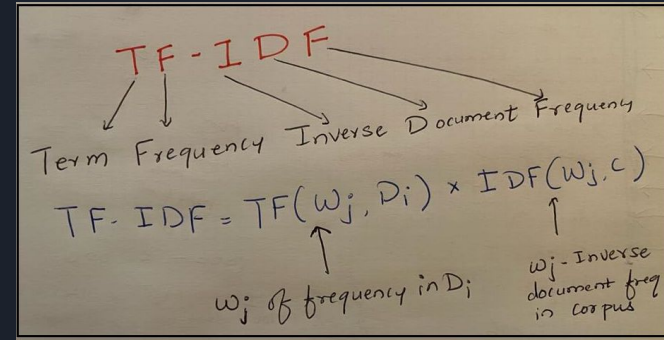 TF-IDF
Term Frequency Inverse Document Frequency
TF-IDF = TF(Wj, Di) × IDF(Wj, C)
Wj of frequency in Di
Wj-Inverse
document freq
in corpus